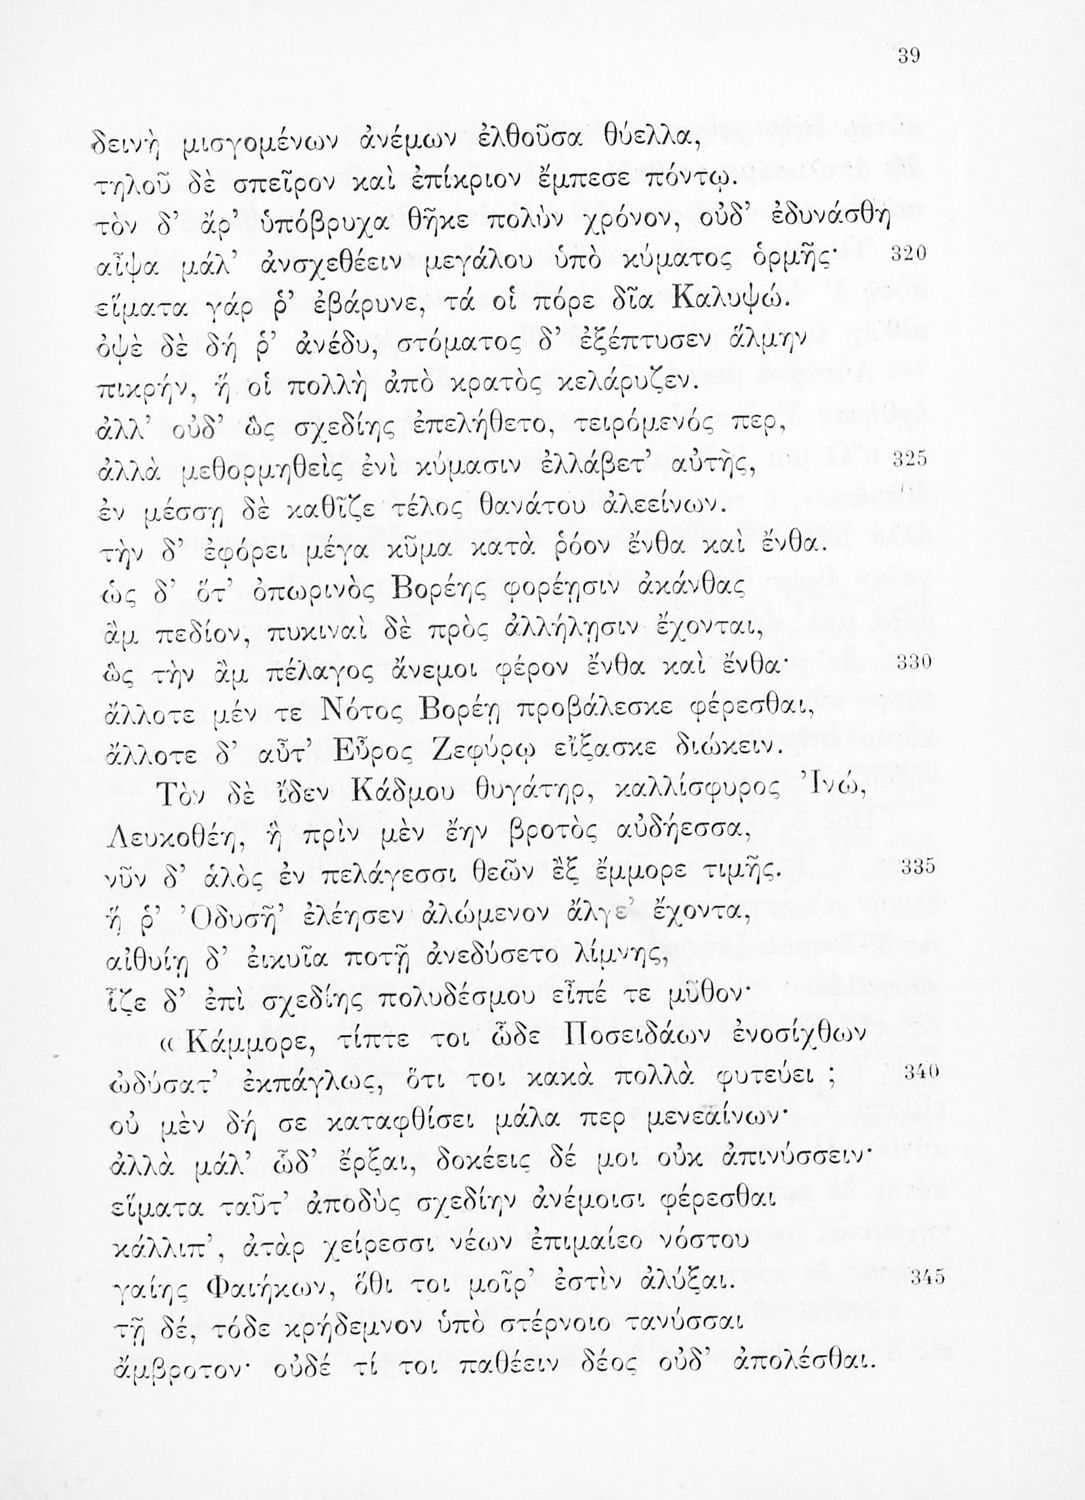 39
δεινὴ μισγομένων ἀνέμων ἐλθοῦσα θύελλα,
τηλοῦ δὲ σπεῖρον καὶ ἐπίκριον ἔμπεσε πόντῳ.
τὸν δ’ ἄρ’ ὑπόβρυχα θῆκε πολὺν χρόνον, οὐδ’ ἐδυνάσθη
αἶψα μάλ’ ἀνσχεθέειν μεγάλου ὑπὸ κύματος ὁρμῆς· 320
εἵματα γάρ ῥ’ ἐβάρυνε, τά οἱ πόρε δῖα Καλυψώ.
ὀψὲ δὲ δή ῥ’ ἀνέδυ, στόματος δ’ ἐξέπτυσεν ἅλμην
πικρήν, ἥ οἱ πολλὴ ἀπὸ κρατὸς κελάρυζεν.
ἀλλ’ οὐδ’ ὣς σχεδίης ἐπελήθετο, τειρόμενός περ,
ἀλλὰ μεθορμηθεὶς ἐνὶ κύμασιν ἐλλάβετ’ αὐτῆς, 325
ἐν μέσσῃ δὲ καθῖζε τέλος θανάτου ἀλεείνων.
τὴν δ’ ἐφόρει μέγα κῦμα κατὰ ῥόον ἔνθα καὶ ἔνθα.
ὡς δ’ ὅτ’ ὀπωρινὸς Βορέης φορέῃσιν ἀκάνθας
ἂμ πεδίον, πυκιναὶ δὲ πρὸς ἀλλήλῃσιν ἔχονται,
ὣς τὴν ἂμ πέλαγος ἄνεμοι φέρον ἔνθα καὶ ἔνθα· 330
ἄλλοτε μέν τε Νότος Βορέῃ προβάλεσκε φέρεσθαι,
ἄλλοτε δ’ αὖτ’ Εὖρος Ζεφύρῳ εἴξασκε διώκειν.
Τὸν δὲ ἴδεν Κάδμου θυγάτηρ, καλλίσφυρος Ἰνώ,
Λευκοθέη, ἣ πρὶν μὲν ἔην βροτὸς αὐδήεσσα,
νῦν δ’ ἁλὸς ἐν πελάγεσσι θεῶν ἒξ ἔμμορε τιμῆς. 335
ἥ ῥ’ Ὀδυσῆ’ ἐλέησεν ἀλώμενον ἄλγε’ ἔχοντα,
αἰθυίῃ δ’ ἐικυῖα ποτῇ ἀνεδύσετο λίμνης,
ἷζε δ’ ἐπὶ σχεδίης πολυδέσμου εἶπέ τε μῦθον·
« Κάμμορε, τίπτε τοι ὧδε Ποσειδάων ἐνοσίχθων
ὠδύσατ’ ἐκπάγλως, ὅτι τοι κακὰ πολλὰ φυτεύει ; 340
οὐ μὲν δή σε καταφθίσει μάλα περ μενεαίνων·
ἀλλὰ μάλ’ ὧδ’ ἔρξαι, δοκέεις δέ μοι οὐκ ἀπινύσσειν·
εἵματα ταῦτ’ ἀποδὺς σχεδίην ἀνέμοισι φέρεσθαι
κάλλιπ’, ἀτὰρ χείρεσσι νέων ἐπιμαίεο νόστου
γαίης Φαιήκων, ὅθι τοι μοῖρ’ ἐστὶν ἀλύξαι. 345
τῇ δέ, τόδε κρήδεμνον ὑπὸ στέρνοιο τανύσσαι
ἄμβροτον· οὐδέ τί τοι παθέειν δέος οὐδ’ ἀπολέσθαι.